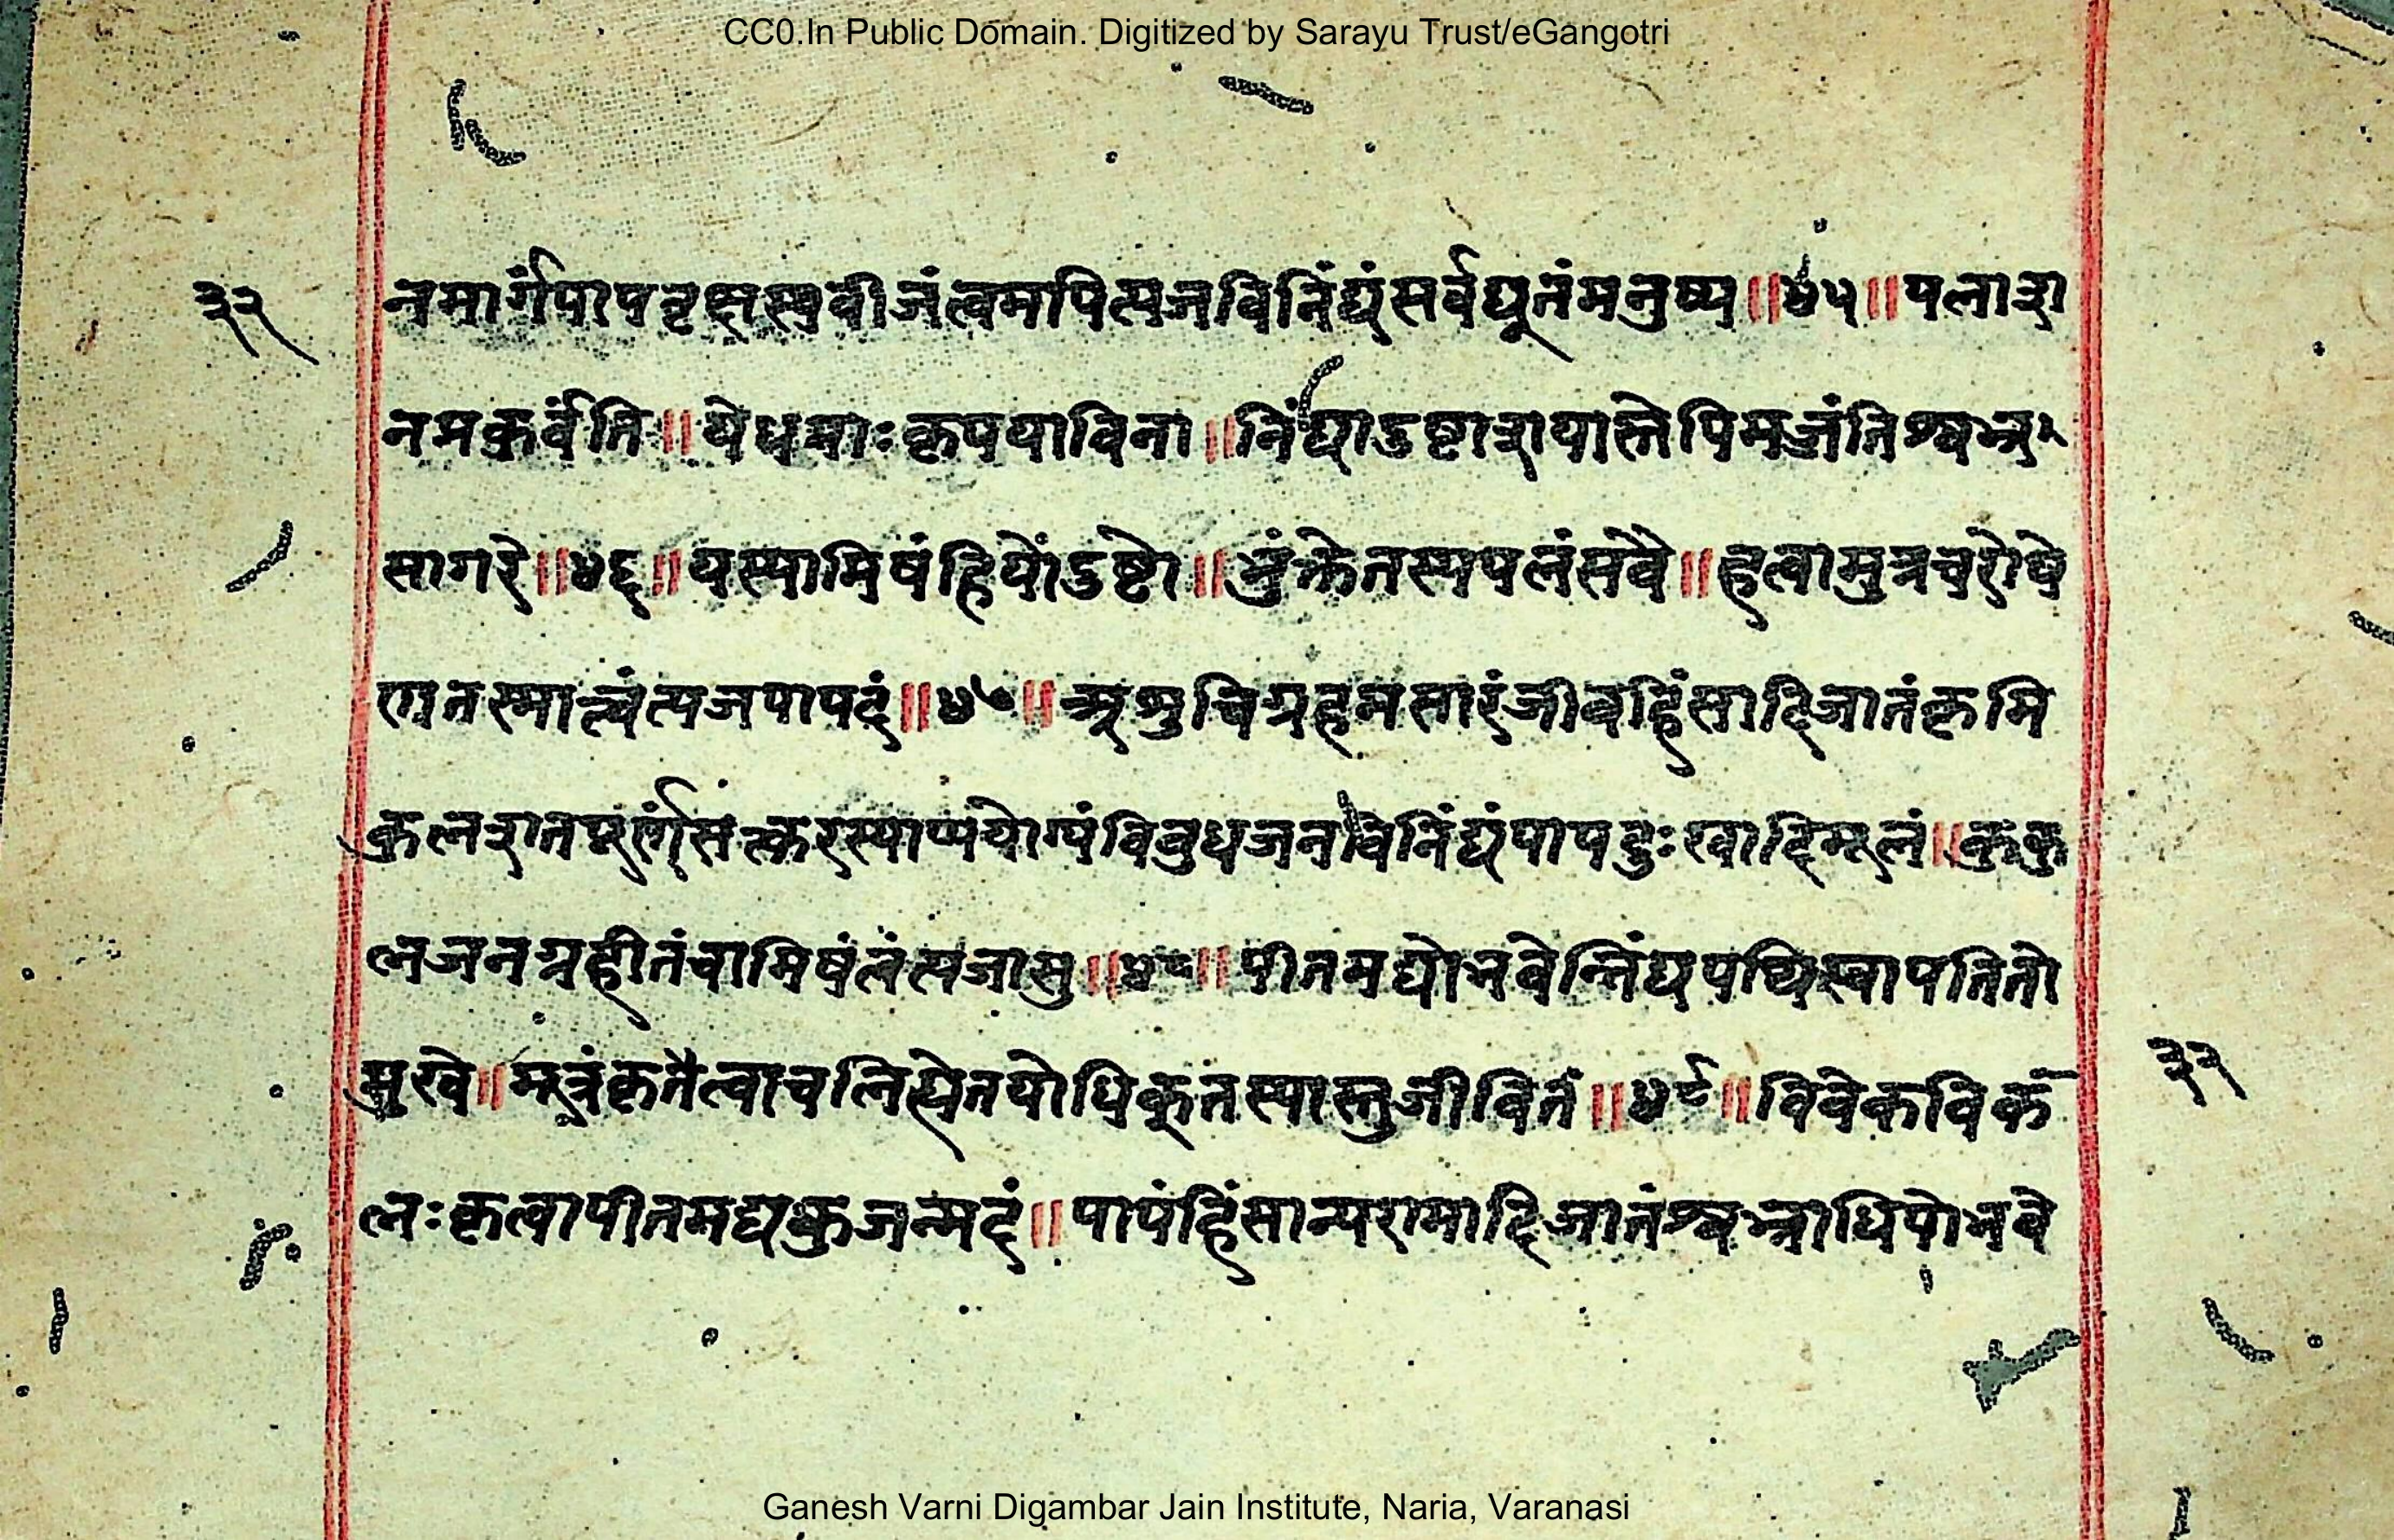 CC0.In Public Domain. Digitized by Sarayu Trust/eGangotri
३२
नमार्गंपापवृक्षस्यवीजंत्वमपित्यजविनिंद्यंसर्वद्यूतंमनुष्य॥४५॥पलाश
नमकुर्वंति॥येधमाःकृपयाविना॥निंद्याऽष्टाशयास्तेपिमज्जंतिश्वभ्र
सागरे॥४६॥यस्यामिषंहियोंऽष्टो॥भुंक्तेतस्यपलंसवै॥हत्वामुत्रचरोषे
णतस्मात्त्वंत्यजपापदं॥४७॥अशुचिगृहमसारंजीवहिंसादिजातंकृमि
कुलशतपूर्णंसत्करस्याप्ययोग्यंविवुधजनविनिंद्यंपापदुःखादिमूलं॥कुकु
लजनगृहीतंचामिषंत्वंत्यजासु॥४८॥पीतमद्योभवेन्निंद्यपथिस्वापतितो
मुखे॥मूत्रंकृतैत्वाचलित्येतयोधिक्तस्यास्तुजीवितं॥४९॥विवेकविक
लःकृत्वापीतमद्यकुजन्मदं॥पापंहिंसान्यरामादिजातंश्वभ्राधिपोभवे
३२
Ganesh Varni Digambar Jain Institute, Naria, Varanasi